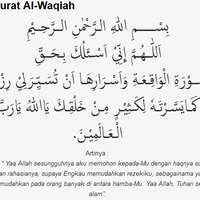 urat Al-Waqiah
بِسْــــمِ اللهِ الرَّحْمٰنِ الرَّحِيْمِ
اَللّٰهُمَّ اِنِّيْ اَسْـئَلُكَ بِحَـقِّ
ـوْرَةِ الْوَاقِعَـةِ وَاَسْرَارِهَا اَنْ تُسَـيِّرَلِيْ رِزْ
كَمَايَسَّرْتَهٗ لِكَثِيْرٍ مِنْ خَلْقِـكَ يَااَللهُ يَارَبَّ
الْعَـالَمِيْنَ.
Artinya :
" Yaa Allah sesungguhnya aku memohon kepada-Mu dengan haqnya su
an rahasianya, supaya Engkau memudahkan rezekiku, sebagaimana ya
emudahkan pada orang banyak di antara hamba-Mu. Yaa Allah, Tuhan se
alam".